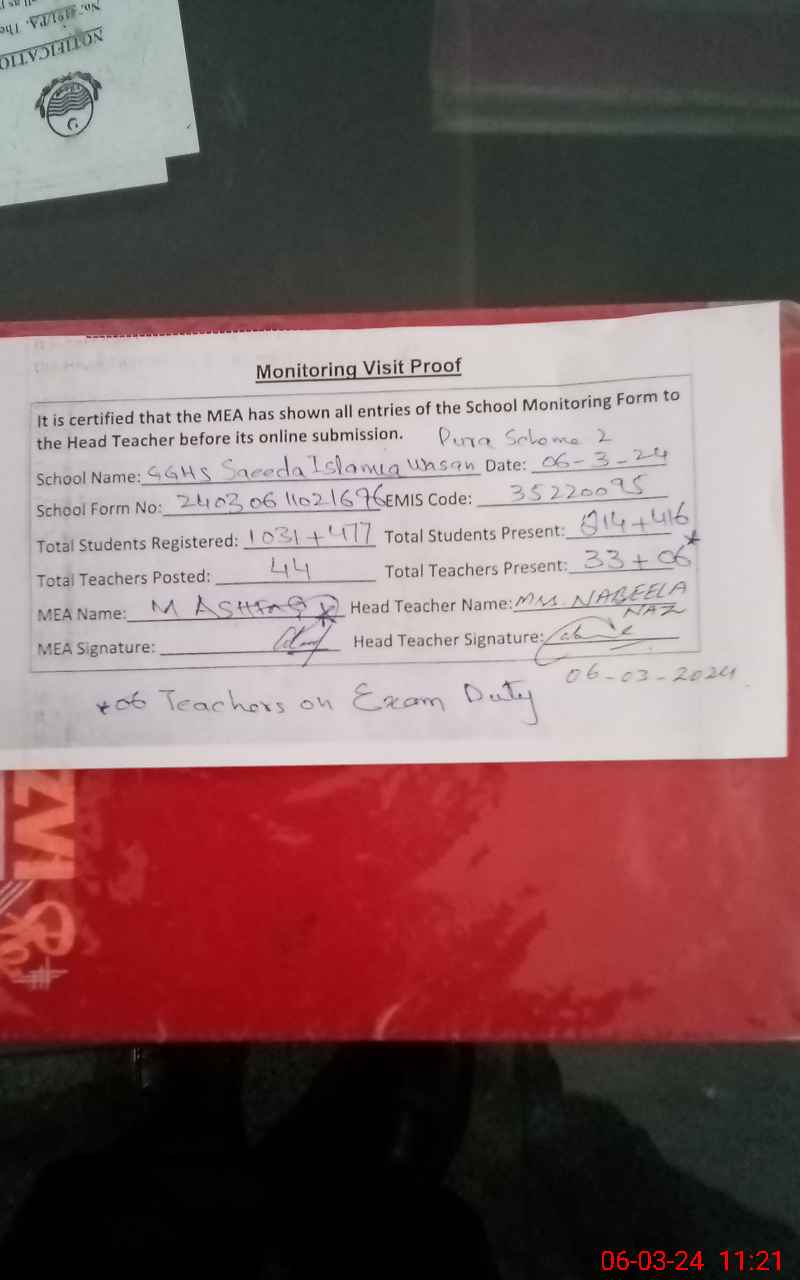 NOTIFICATIO
Monitoring Visit Proof
It is certified that the MEA has shown all entries of the School Monitoring Form to
the Head Teacher before its online submission. Pura Scheme 2
School Name: GGHS Saeeda Islamia Wasan Date: 06-3-24
School Form No: 24030611021696 EMIS Code: 35220095
Total Students Registered: 1031+477 Total Students Present: 814+416
Total Teachers Posted: 44 Total Teachers Present: 33+06*
MEA Name: M ASHFAQ Head Teacher Name: Mrs. NABEELA
NAZ
MEA Signature: Head Teacher Signature:
06-03-2024
*06 Teachers on Exam Duty
ZVI
06-03-24 11:21